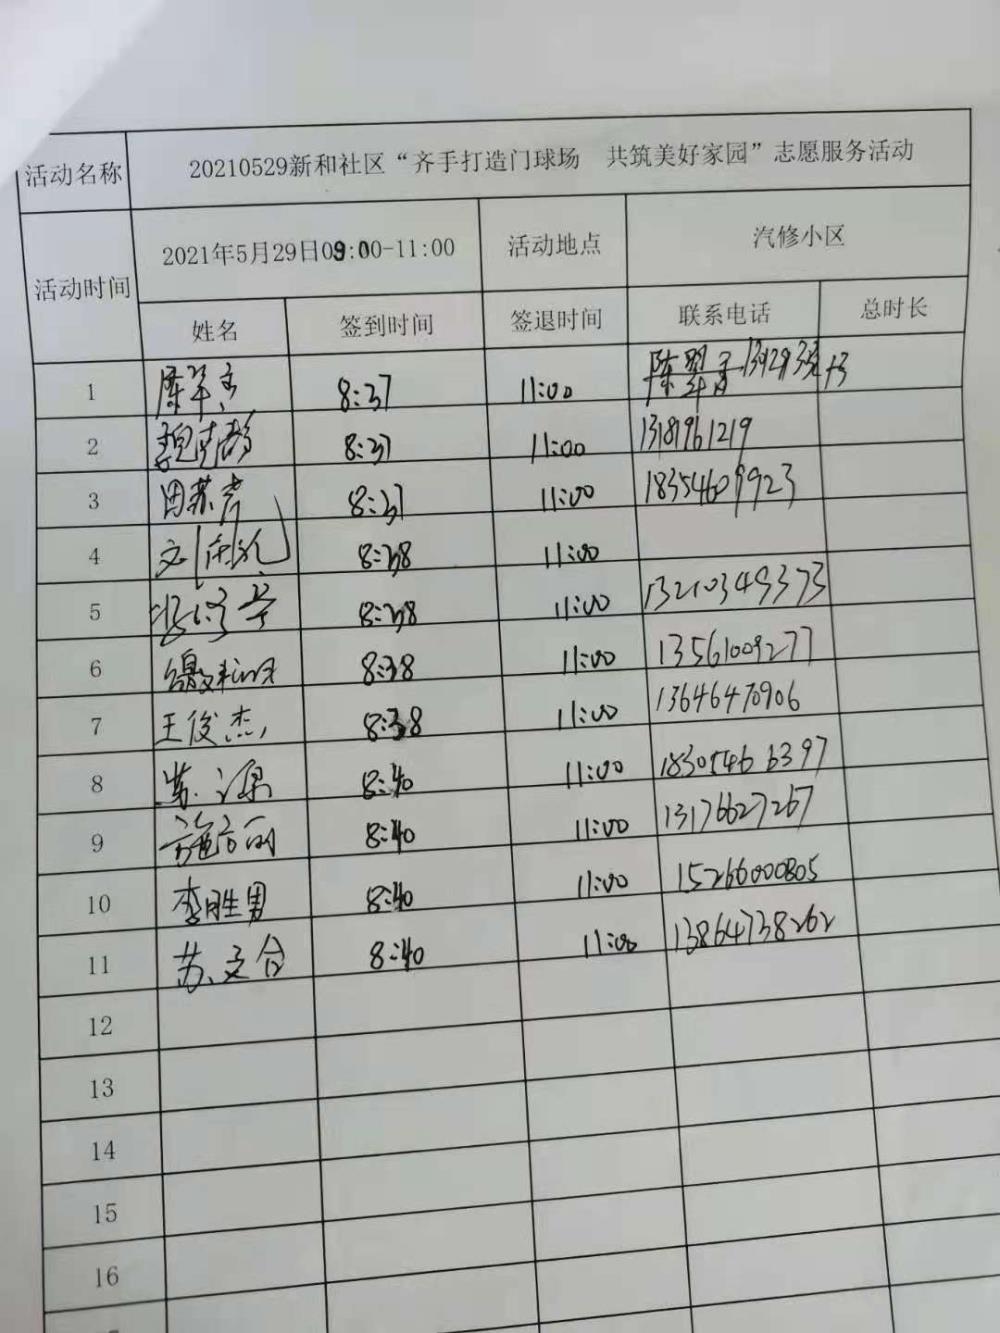 活动名称 20210529新和社区“齐手打造门球场 共筑美好家园”志愿服务活动
活动时间 2021年5月29日09:00-11:00 活动地点 汽修小区
姓名 签到时间 签退时间 联系电话 总时长
1 8:37 11:00
2 8:37 11:00 13181961219
3 田苏芳 8:37 11:00 18354609923
4 8:38 11:00
5 8:38 11:00 13210349373
6 8:38 11:00 13561009277
7 王俊杰 8:38 11:00 13646470906
8 8:40 11:00 18305466397
9 8:40 11:00 13176627267
10 李胜男 8:40 11:00 15266000805
11 苏文合 8:40 11:00 13864738262
12
13
14
15
16